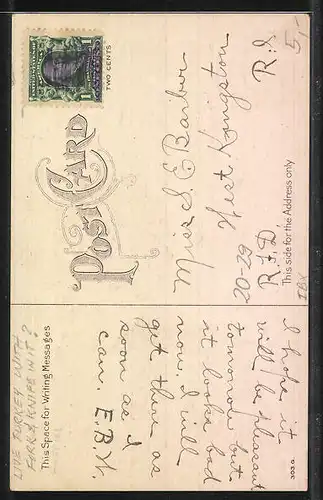 POST CARD
TWO CENTS
1
This Space for Writing Messages
This side for the Address only
I hope it
will be pleasant
tomorrow but
it looks bad
now. I will
get there as
soon as I
can. E.B.W.
Miss S. E Barber
West Kingston
R. I.
R.F.D.
62-02
303 G
5,-
LIVE TURKEY WITH
FORK & KNIFE IN IT?